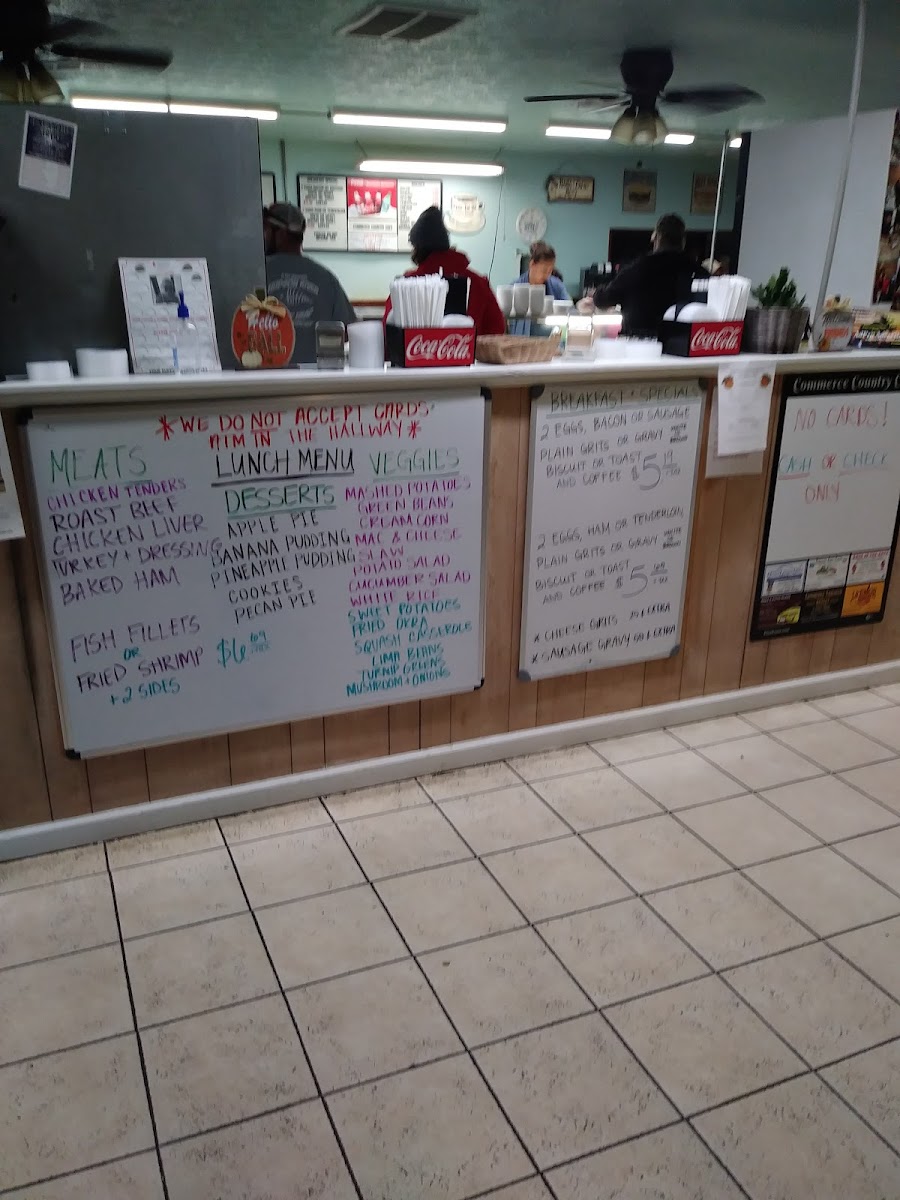 Hello
FALL
Coca-Cola
Coca-Cola
*WE DO NOT ACCEPT CARDS*
ATM IN THE HALLWAY*
MEATS
CHICKEN TENDERS
ROAST BEEF
CHICKEN LIVER
TURKEY + DRESSING
BAKED HAM
FISH FILLETS
OR
FRIED SHRIMP
+ 2 SIDES
LUNCH MENU
DESSERTS
APPLE PIE
BANANA PUDDING
PINEAPPLE PUDDING
COOKIES
PECAN PIE
$6.69
VEGGIES
MASHED POTATOES
GREEN BEANS
CREAM CORN
MAC & CHEESE
SLAW
POTATO SALAD
CUCUMBER SALAD
WHITE RICE
SWEET POTATOES
FRIED OKRA
SQUASH CASSEROLE
LIMA BEANS
TURNIP GREENS
MUSHROOM + ONIONS
BREAKFAST SPECIALS
2 EGGS, BACON OR SAUSAGE
PLAIN GRITS OR GRAVY
BISCUIT OR TOAST
AND COFFEE $5.19
2 EGGS, HAM OR TENDERLOIN
PLAIN GRITS OR GRAVY
BISCUIT OR TOAST
AND COFFEE $5.69
* CHEESE GRITS 25¢ EXTRA
* SAUSAGE GRAVY 50¢ EXTRA
Commerce Country
NO CARDS!
CASH OR CHECK
ONLY